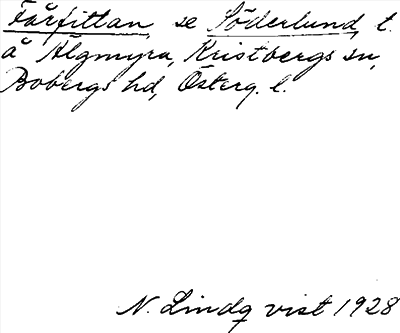 Fårfittan, se Söderlund, t.
å Älgmyra, Kristbergs sn,
Bobergs hd, Österg. l.
N. Lindqvist 1928